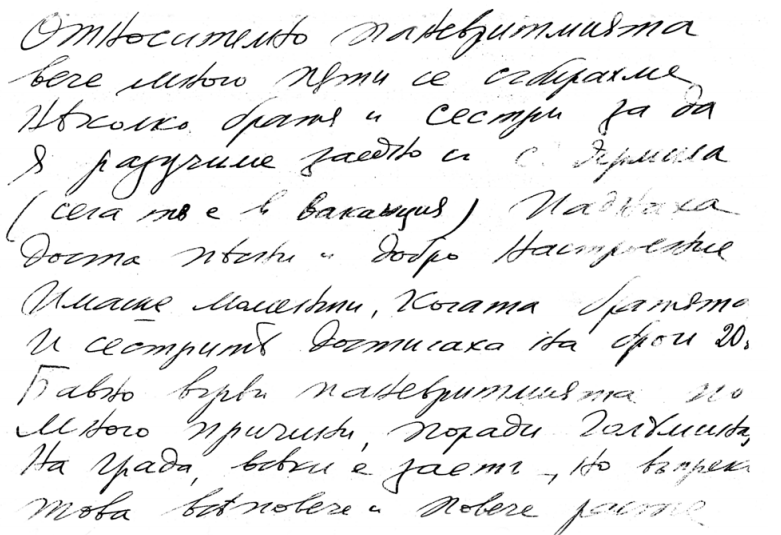 Относително паневритмията
вече много пѫти се събирахме
нѣколко братя и сестри за да
я разучиме заедно и с
(сега тя е в ваканция) Паднаха
доста пѣсни и добро настроение
Имаше моменти, когато братята
и сестритѣ достигаха на брой 20.
Бавно върви паневритмията по
много причини, поради големина
на града, всѣки е заетъ, но въпреки
това всѣ повече и повече расте